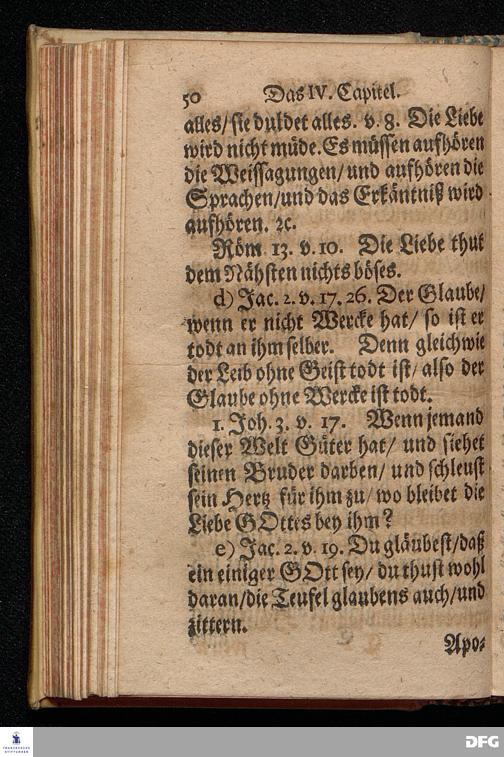 50 Das IV. Capitel.
alles/ sie duldet alles. v. 8. Die Liebe
wird nicht müde. Es müssen aufhören
die Weissagungen/ und aufhören die
Sprachen/ und das Erkäntniß wird
aufhören. ꝛc.
Röm. 13. v. 10. Die Liebe thut
dem Nähsten nichts böses.
d) Jac. 2. v. 17. 26. Der Glaube/
wenn er nicht Wercke hat/ so ist er
todt an ihm selber. Denn gleichwie
der Leib ohne Geist todt ist/ also der
Glaube ohne Wercke ist todt.
1. Joh. 3. v. 17. Wenn jemand
dieser Welt Güter hat/ und siehet
seinen Bruder darben/ und schleust
sein Hertz für ihm zu/ wo bleibet die
Liebe GOttes bey ihm?
e) Jac. 2. v. 19. Du gläubest/ daß
ein einiger GOtt sey/ du thust wohl
daran/ die Teufel glaubens auch/ und
zittern.
Apo⸗
FRANCKESCHE
STIFTUNGEN
DFG